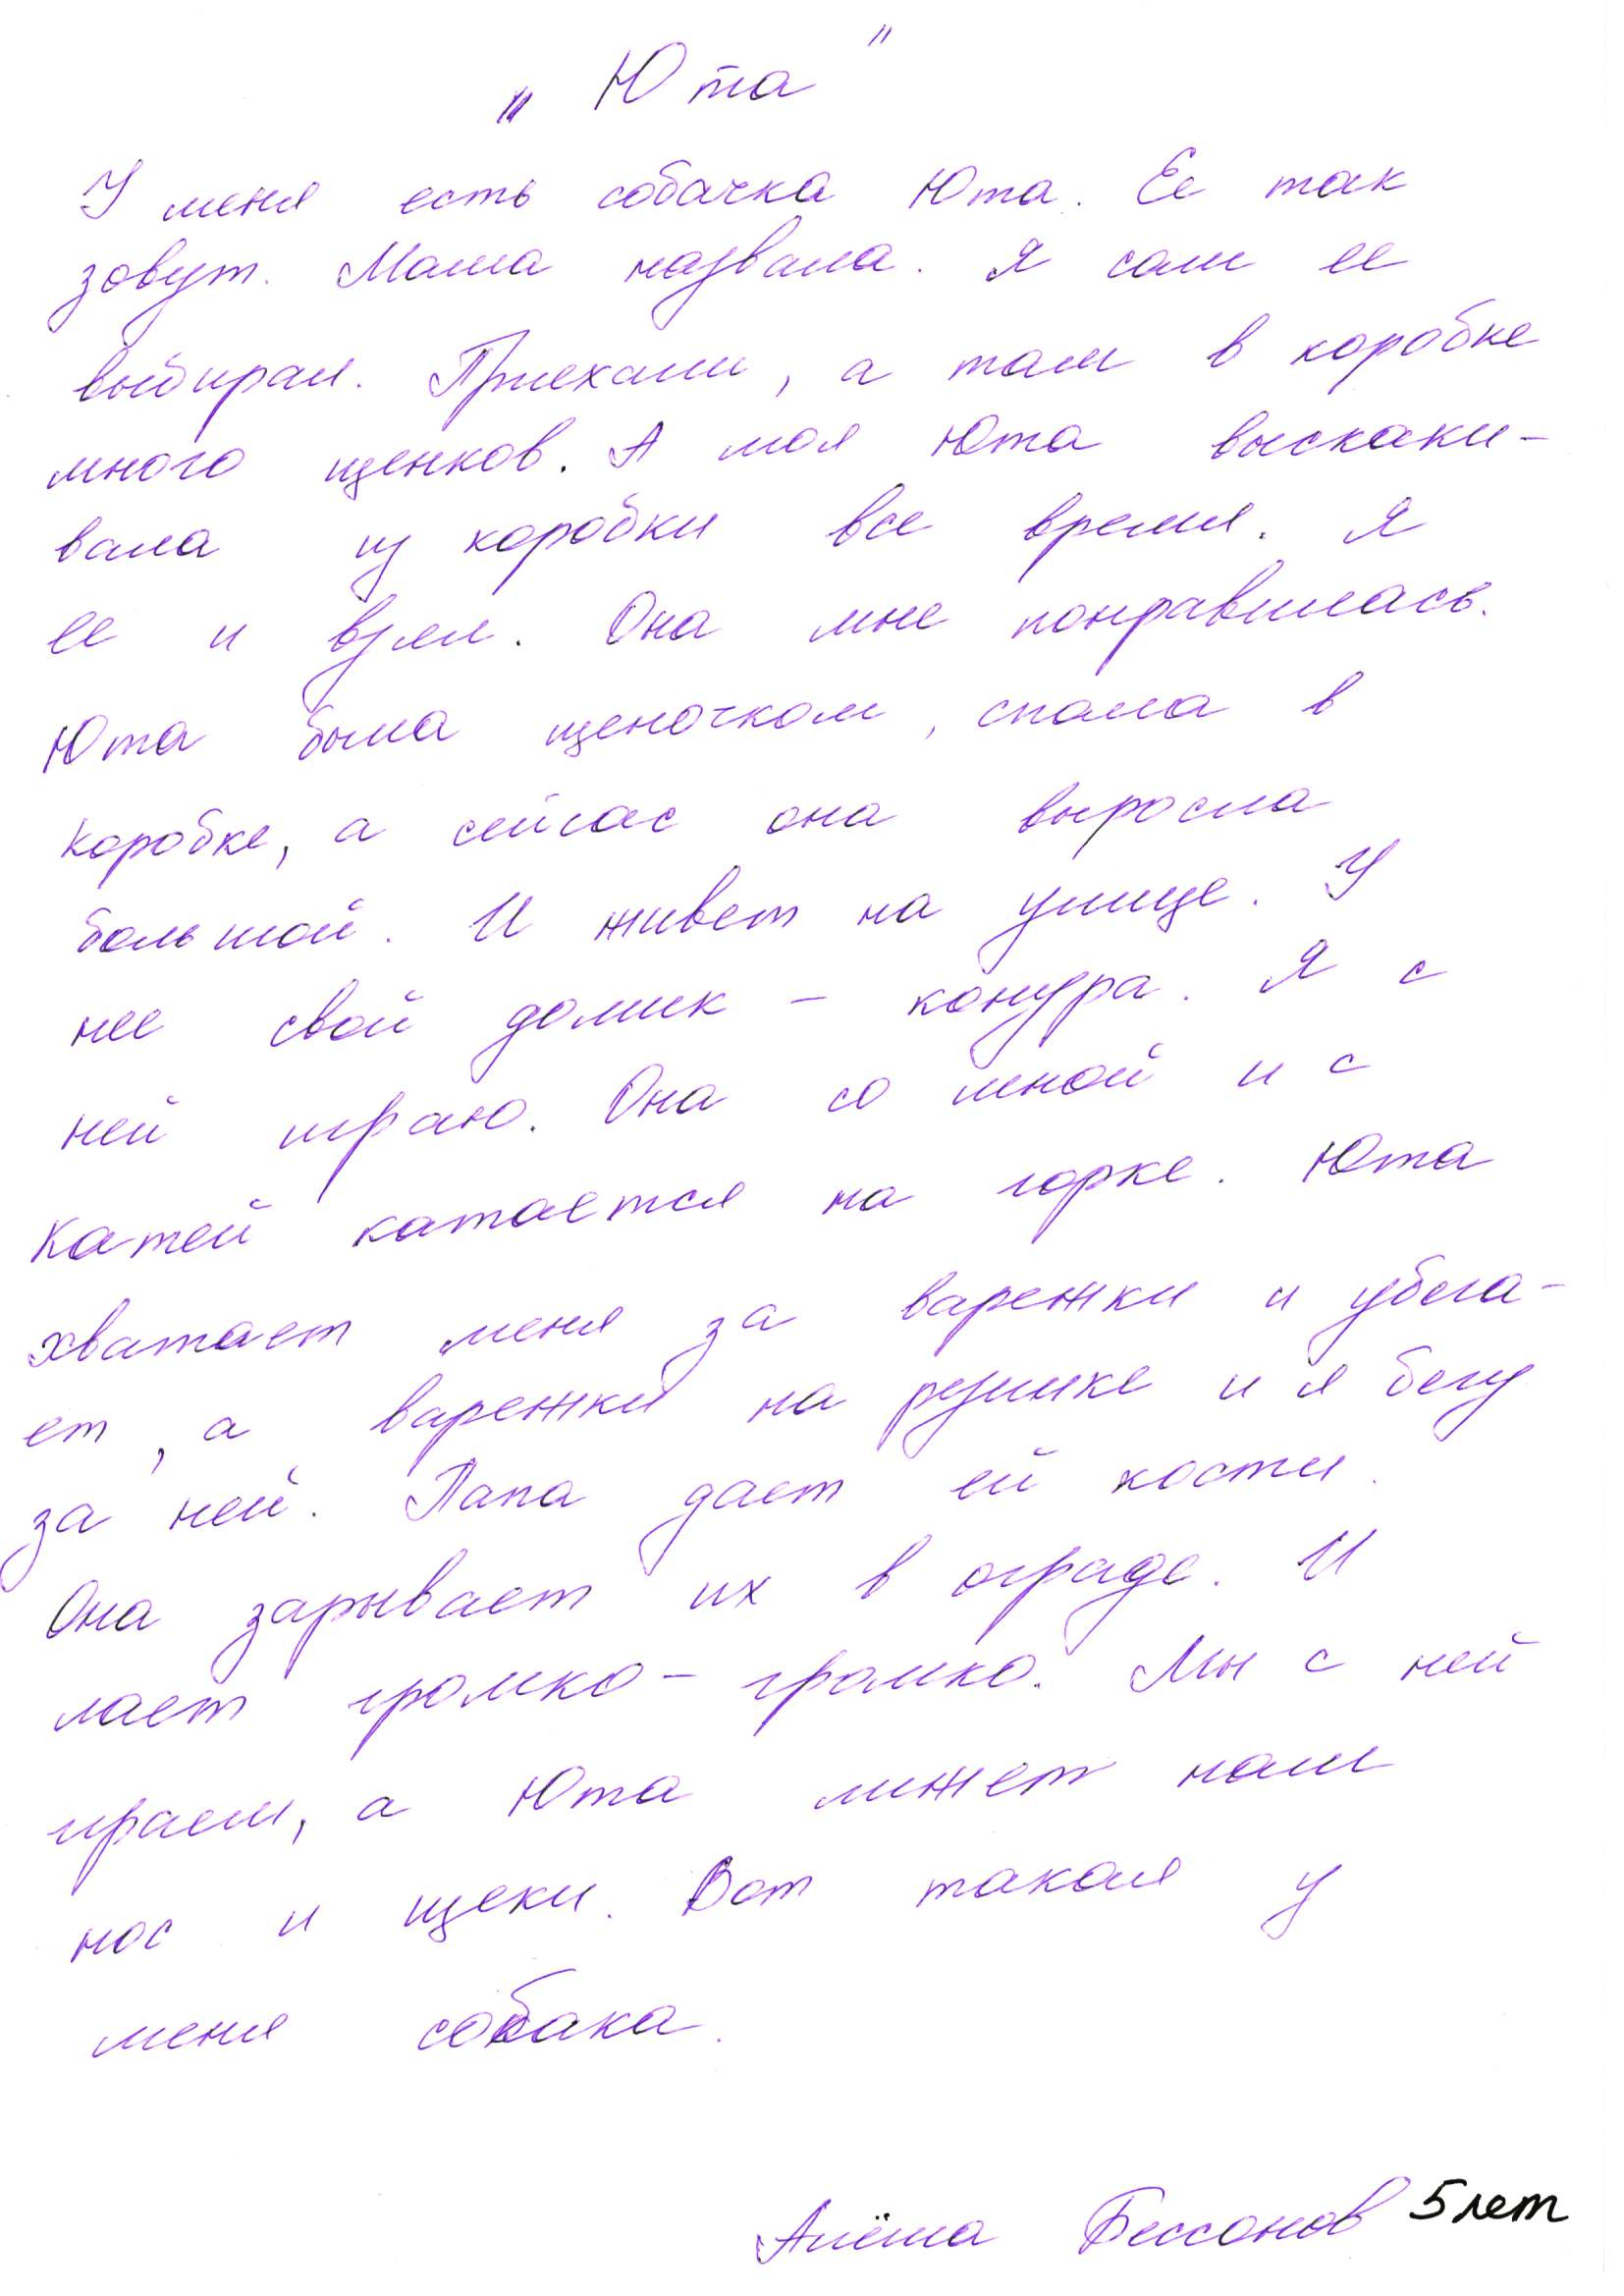 „Юта"
У меня есть собачка Юта. Ее так
зовут. Мама назвала. Я сам ее
выбирал. Приехали, а там в коробке
много щенков. А моя Юта выскаки-
вала из коробки все время. Я
ее и взял. Она мне понравилась.
Юта была щеночком, спала в
коробке, а сейчас она выросла
большой. И живет на улице. У
нее свой домик – конура. Я с
ней играю. Она со мной и с
Катей катается на горке. Юта
хватает меня за варежки и убега-
ет, а варежки на резинке и я бегу
за ней. Папа дает ей кости.
Она зарывает их в ограде. И
лает громко – громко. Мы с ней
играем, а Юта лижет нам
нос и щеки. Вот такая у
меня собака.
Алёша Бессонов 5 лет